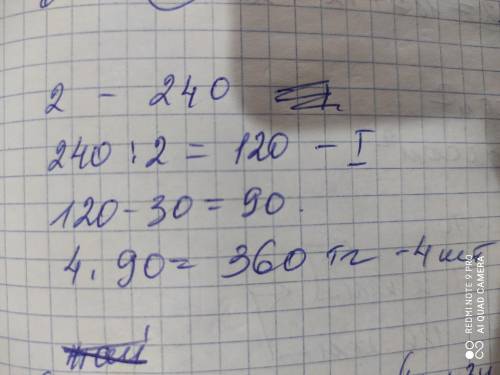 2 - 240
240 : 2 = 120 - I
120 - 30 = 90.
4 . 90 = 360 тг - 4 шт
REDMI NOTE 9 PRO
AI QUAD CAMERA